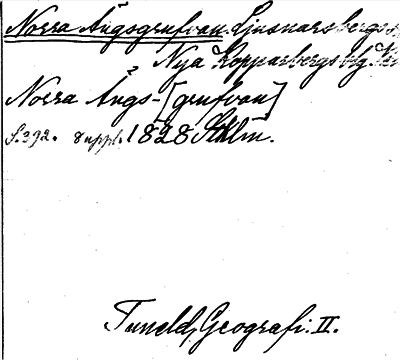 Norra Ängsgrufvan Ljusnarsbergs s.
" Nya Kopparbergs bg
Norra Ängs-[grufvan]
S. 392. Suppl. 1828 Sthlm.
Tuneld, Geografi. II.